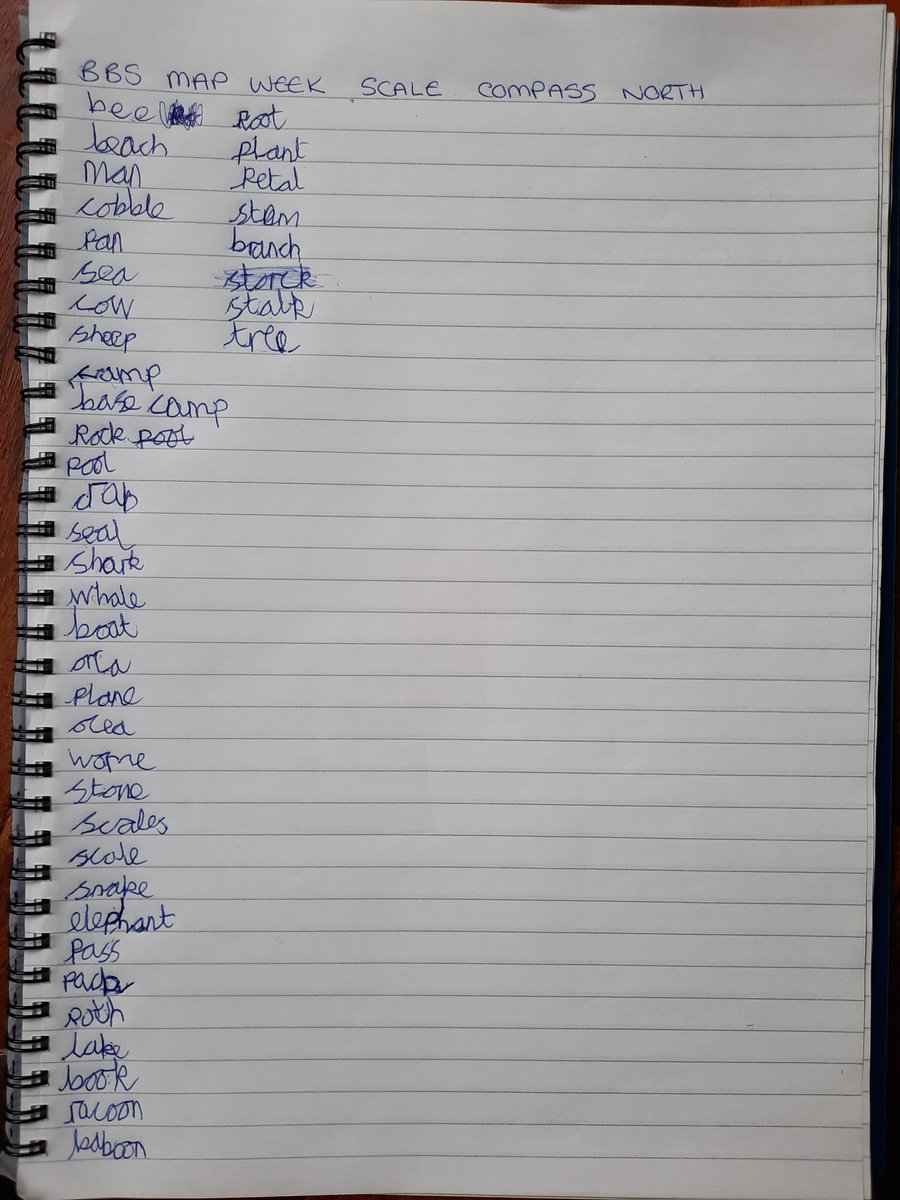 BBS MAP WEEK SCALE COMPASS NORTH
bee
beach
Man
cobble
Pan
sea
cow
sheep
camp
base camp
Rock pool
pool
crab
seal
shark
whale
boat
orca
plane
ocea
worme
stone
scales
scale
snake
elephant
pass
path
lake
book
racoon
baboon
Root
plant
Petal
stem
branch
storck
stalk
tree